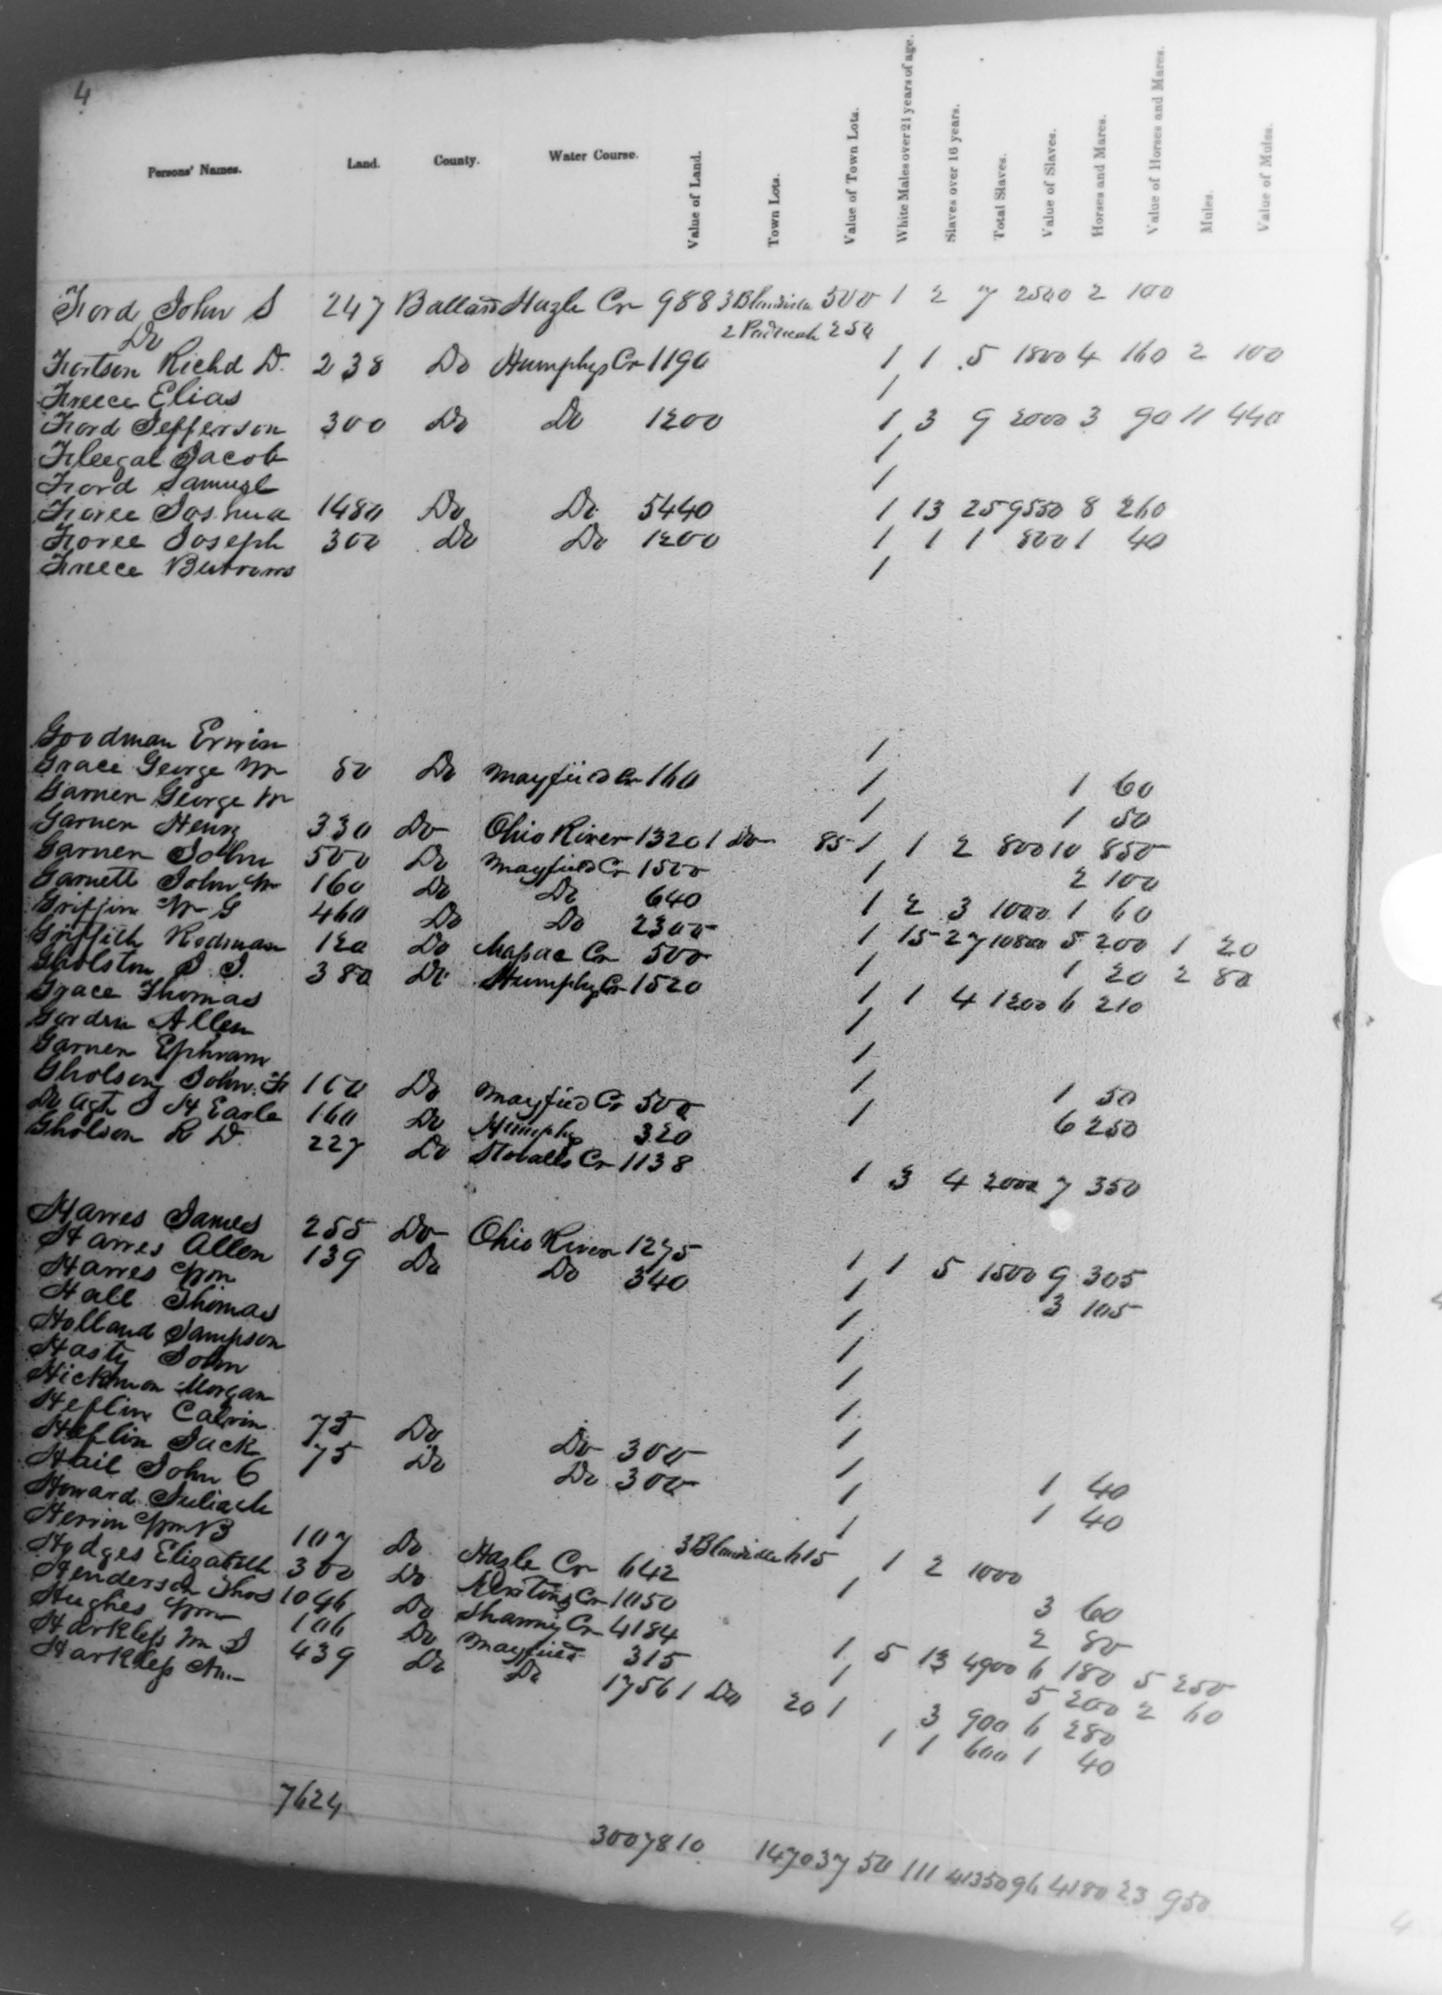 4
Persons' Names. Land. County. Water Course. Value of Land. Town Lots. Value of Town Lots. White Males over 21 years of age. Slaves over 16 years. Total Slaves. Value of Slaves. Horses and Mares. Value of Horses and Mares. Mules. Value of Mules.
Ford John S 247 Ballard Hazle Cr 988 3 Blandville 500 1 2 7 2500 2 100
Do 2 Paducah 250
Fortson Richd D. 238 Do Humphys Cr 1190 1 1 5 1800 4 160 2 100
Freece Elias 1
Ford Jefferson 300 Do Do 1200 1 3 9 2000 3 90 11 440
Fleegal Jacob 1
Ford Samuel 1
Foree Joshua 1480 Do Do 5440 1 13 25 9550 8 260
Foree Joseph 300 Do Do 1200 1 1 1 800 1 40
Freece Burrows 1
Goodman Erwin 1
Grace George W 80 Do Mayfield Cr 160 1 1 60
Garner George W 1 1 50
Garner Henry 330 Do Ohio River 1320 1 Do 85 1 1 2 800 10 850
Garner John 500 Do Mayfield Cr 1500 1 2 100
Garnett John W 160 Do Do 640 1 2 3 1000 1 60
Griffin Wm G 460 Do Do 2300 1 15 27 10800 5 200 1 20
Griffith Rodman 120 Do Massac Cr 500 1 1 20 2 80
Gholston J. J. 380 Do Humphy Cr 1520 1 1 4 1200 6 210
Grace Thomas 1
Gordon Allen 1
Garner Ephram 1 1 50
Gholson John F 160 Do Mayfied Cr 500 1 6 250
Do Agt J H Earle 160 Do Humphy 320
Gholson R D. 227 Do Stovalls Cr 1138 1 3 4 2000 7 350
Harres James 255 Do Ohio River 1275 1 1 5 1500 9 305
Harres Allen 139 Do Do 340 1 3 105
Harres Wm 1
Hall Thomas 1
Holland Sampson 1
Hasty John 1
Hickmon Morgan 1
Heflin Calvin 75 Do Do 300 1 1 40
Heflin Jack 75 Do Do 300 1 1 40
Hail John C 1
Howard
Herrin Wm B 107 Do Hazle Cr 642 3 Blandville 615 1 2 1000
Hodges Elizabeth 300 Do Cr 1050 1 3 60
Henderson Thos 1046 Do Shawny Cr 4184 2 80
Hughes Wm 106 Do Mayfield 315 1 5 13 4900 6 180 5 250
Harkless Wm J 439 Do Do 1756 1 Do 20 1 5 200 2 60
Harkless 1 3 900 6 280
1 1 600 1 40
7624 30078 10 1470 37 50 111 41350 96 4180 23 950